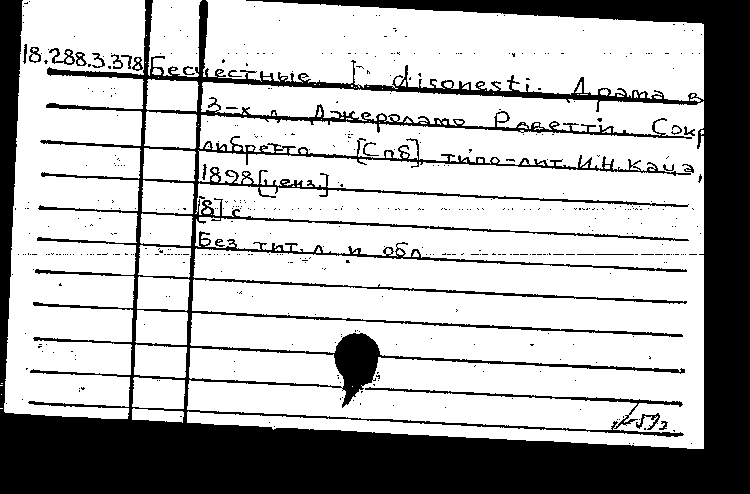 18.288.3.378 Бесчестные I disonesti. Драма в
3-х д. Джероламо Роветти. Сокр
либретто [Спб] типо-лит. И.Н. Кача,
1898[ценз.].
[8] с.
Без тит. л. и обл.